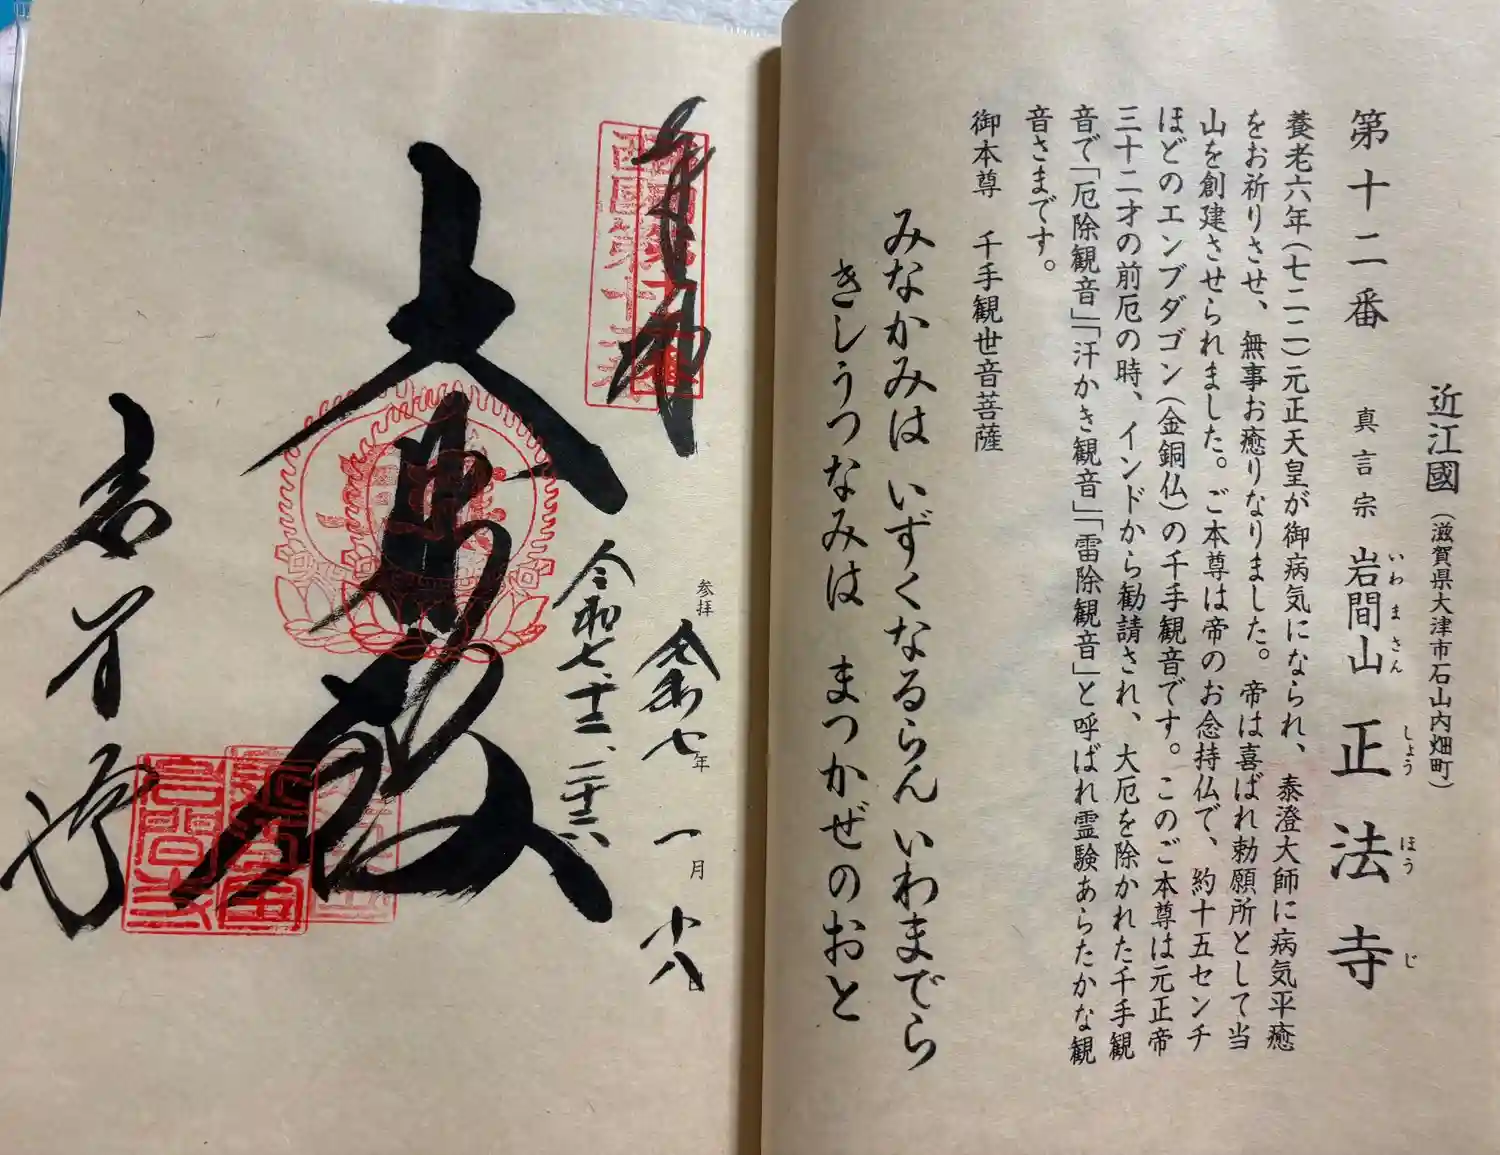 近江國（滋賀県大津市石山内畑町）
第十二番 真言宗 岩間山 正法寺
いわまさん しょうほうじ
養老六年（七二二）元正天皇が御病気になられ、泰澄大師に病気平癒
をお祈りさせ、無事お癒りなりました。帝は喜ばれ勅願所として当
山を創建させられました。ご本尊は帝のお念持仏で、約十五センチ
ほどのエンブダゴン（金銅仏）の千手観音です。このご本尊は元正帝
三十二才の前厄の時、インドから勧請され、大厄を除かれた千手観
音で「厄除観音」「汗かき観音」「雷除観音」と呼ばれ霊験あらたかな観
音さまです。
御本尊 千手観世音菩薩
みなかみは いずくなるらん いわまでら
きしうつなみは まつかぜのおと
奉拝
西國第十二番
参拝 令和七年 一月 十八
令和七、十二、二十六
大悲殿
岩間寺